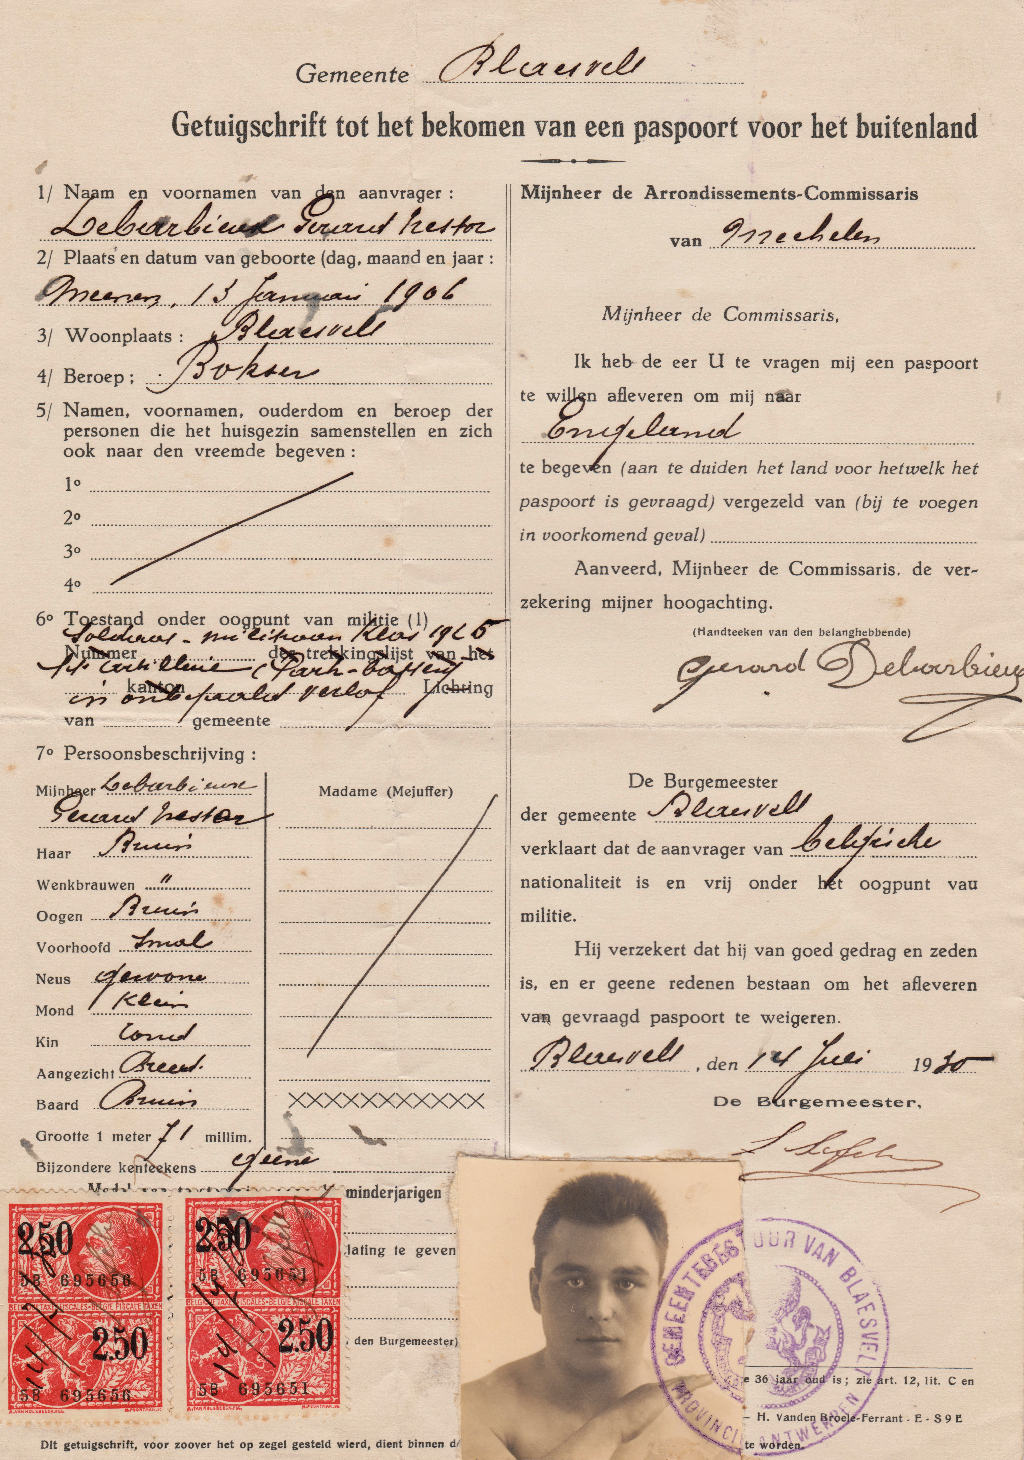 Gemeente Blaesvelt
Getuigschrift tot het bekomen van een paspoort voor het buitenland
1/ Naam en voornamen van den aanvrager :
Debarbieux Gerard Nestor
2/ Plaats en datum van geboorte (dag, maand en jaar :
Meenen, 13 Januari 1906
3/ Woonplaats : Blaesvelt
4/ Beroep ; Bokser
5/ Namen, voornamen, ouderdom en beroep der
personen die het huisgezin samenstellen en zich
ook naar den vreemde begeven :
1º
2º
3º
4º
6º Toestand onder oogpunt van militie (1)
Soldaat - miliciaan Klas 1926
Nummer der trekkingslijst van het
artillerie (Park-
kanton Lichting
in onbepaald verlof
van gemeente
7º Persoonsbeschrijving :
Mijnheer Debarbieux
Gerard Nestor
Madame (Mejuffer)
Haar Bruin
Wenkbrauwen "
Oogen Bruin
Voorhoofd Smal
Neus gewone
Mond Klein
Kin rond
Aangezicht Breed.
Baard Bruin
XXXXXXXXXXXX
Grootte 1 meter 71 millim.
Bijzondere kenteekens geene
minderjarigen
lating te geven
den Burgemeester)
Mijnheer de Arrondissements-Commissaris
van Mechelen
Mijnheer de Commissaris,
Ik heb de eer U te vragen mij een paspoort
te willen afleveren om mij naar
Engeland
te begeven (aan te duiden het land voor hetwelk het
paspoort is gevraagd) vergezeld van (bij te voegen
in voorkomend geval)
Aanveerd, Mijnheer de Commissaris. de ver-
zekering mijner hoogachting.
(Handteeken van den belanghebbende)
Gerard Debarbieux
De Burgemeester
der gemeente Blaesvelt
verklaart dat de aanvrager van belgische
nationaliteit is en vrij onder het oogpunt vau
militie.
Hij verzekert dat hij van goed gedrag en zeden
is, en er geene redenen bestaan om het afleveren
van gevraagd paspoort te weigeren.
Blaesvelt, den 14 Juli 1930
De Burgemeester,
2.50
5B 695656
2.50
5B 695651
BELGIE FISCALE TAXEN
2.50
5B 695656
2.50
5B 695651
GEMEENTEBESTUUR VAN BLAESVELT
PROVINCIE ANTWERPEN
e 36 jaar oud is ; zie art. 12, lit. C en
— H. Vanden Broele-Ferrant - E - S9E
Dit getuigschrift, voor zoover het op zegel gesteld wierd, dient binnen d
te worden.